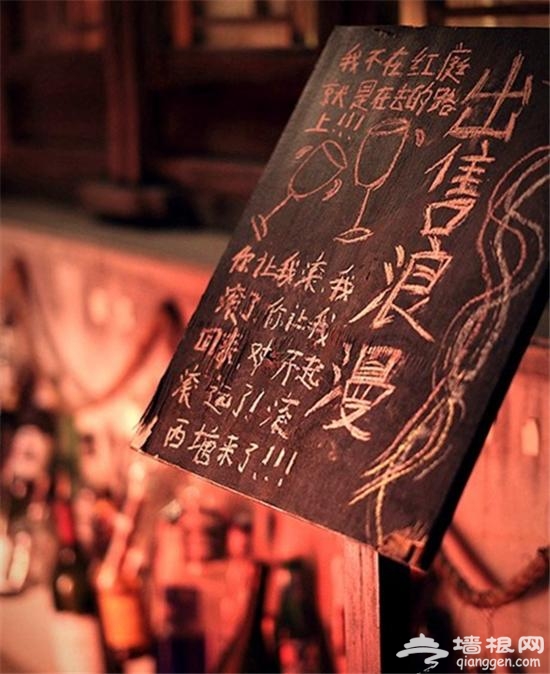 我不在红庭
就是在去的路
上!!!
出售浪漫
你让我滚,我
滚了,你让我
回来,对不起
滚远了!滚
西塘来了!!!
墙根网
qianggen.com